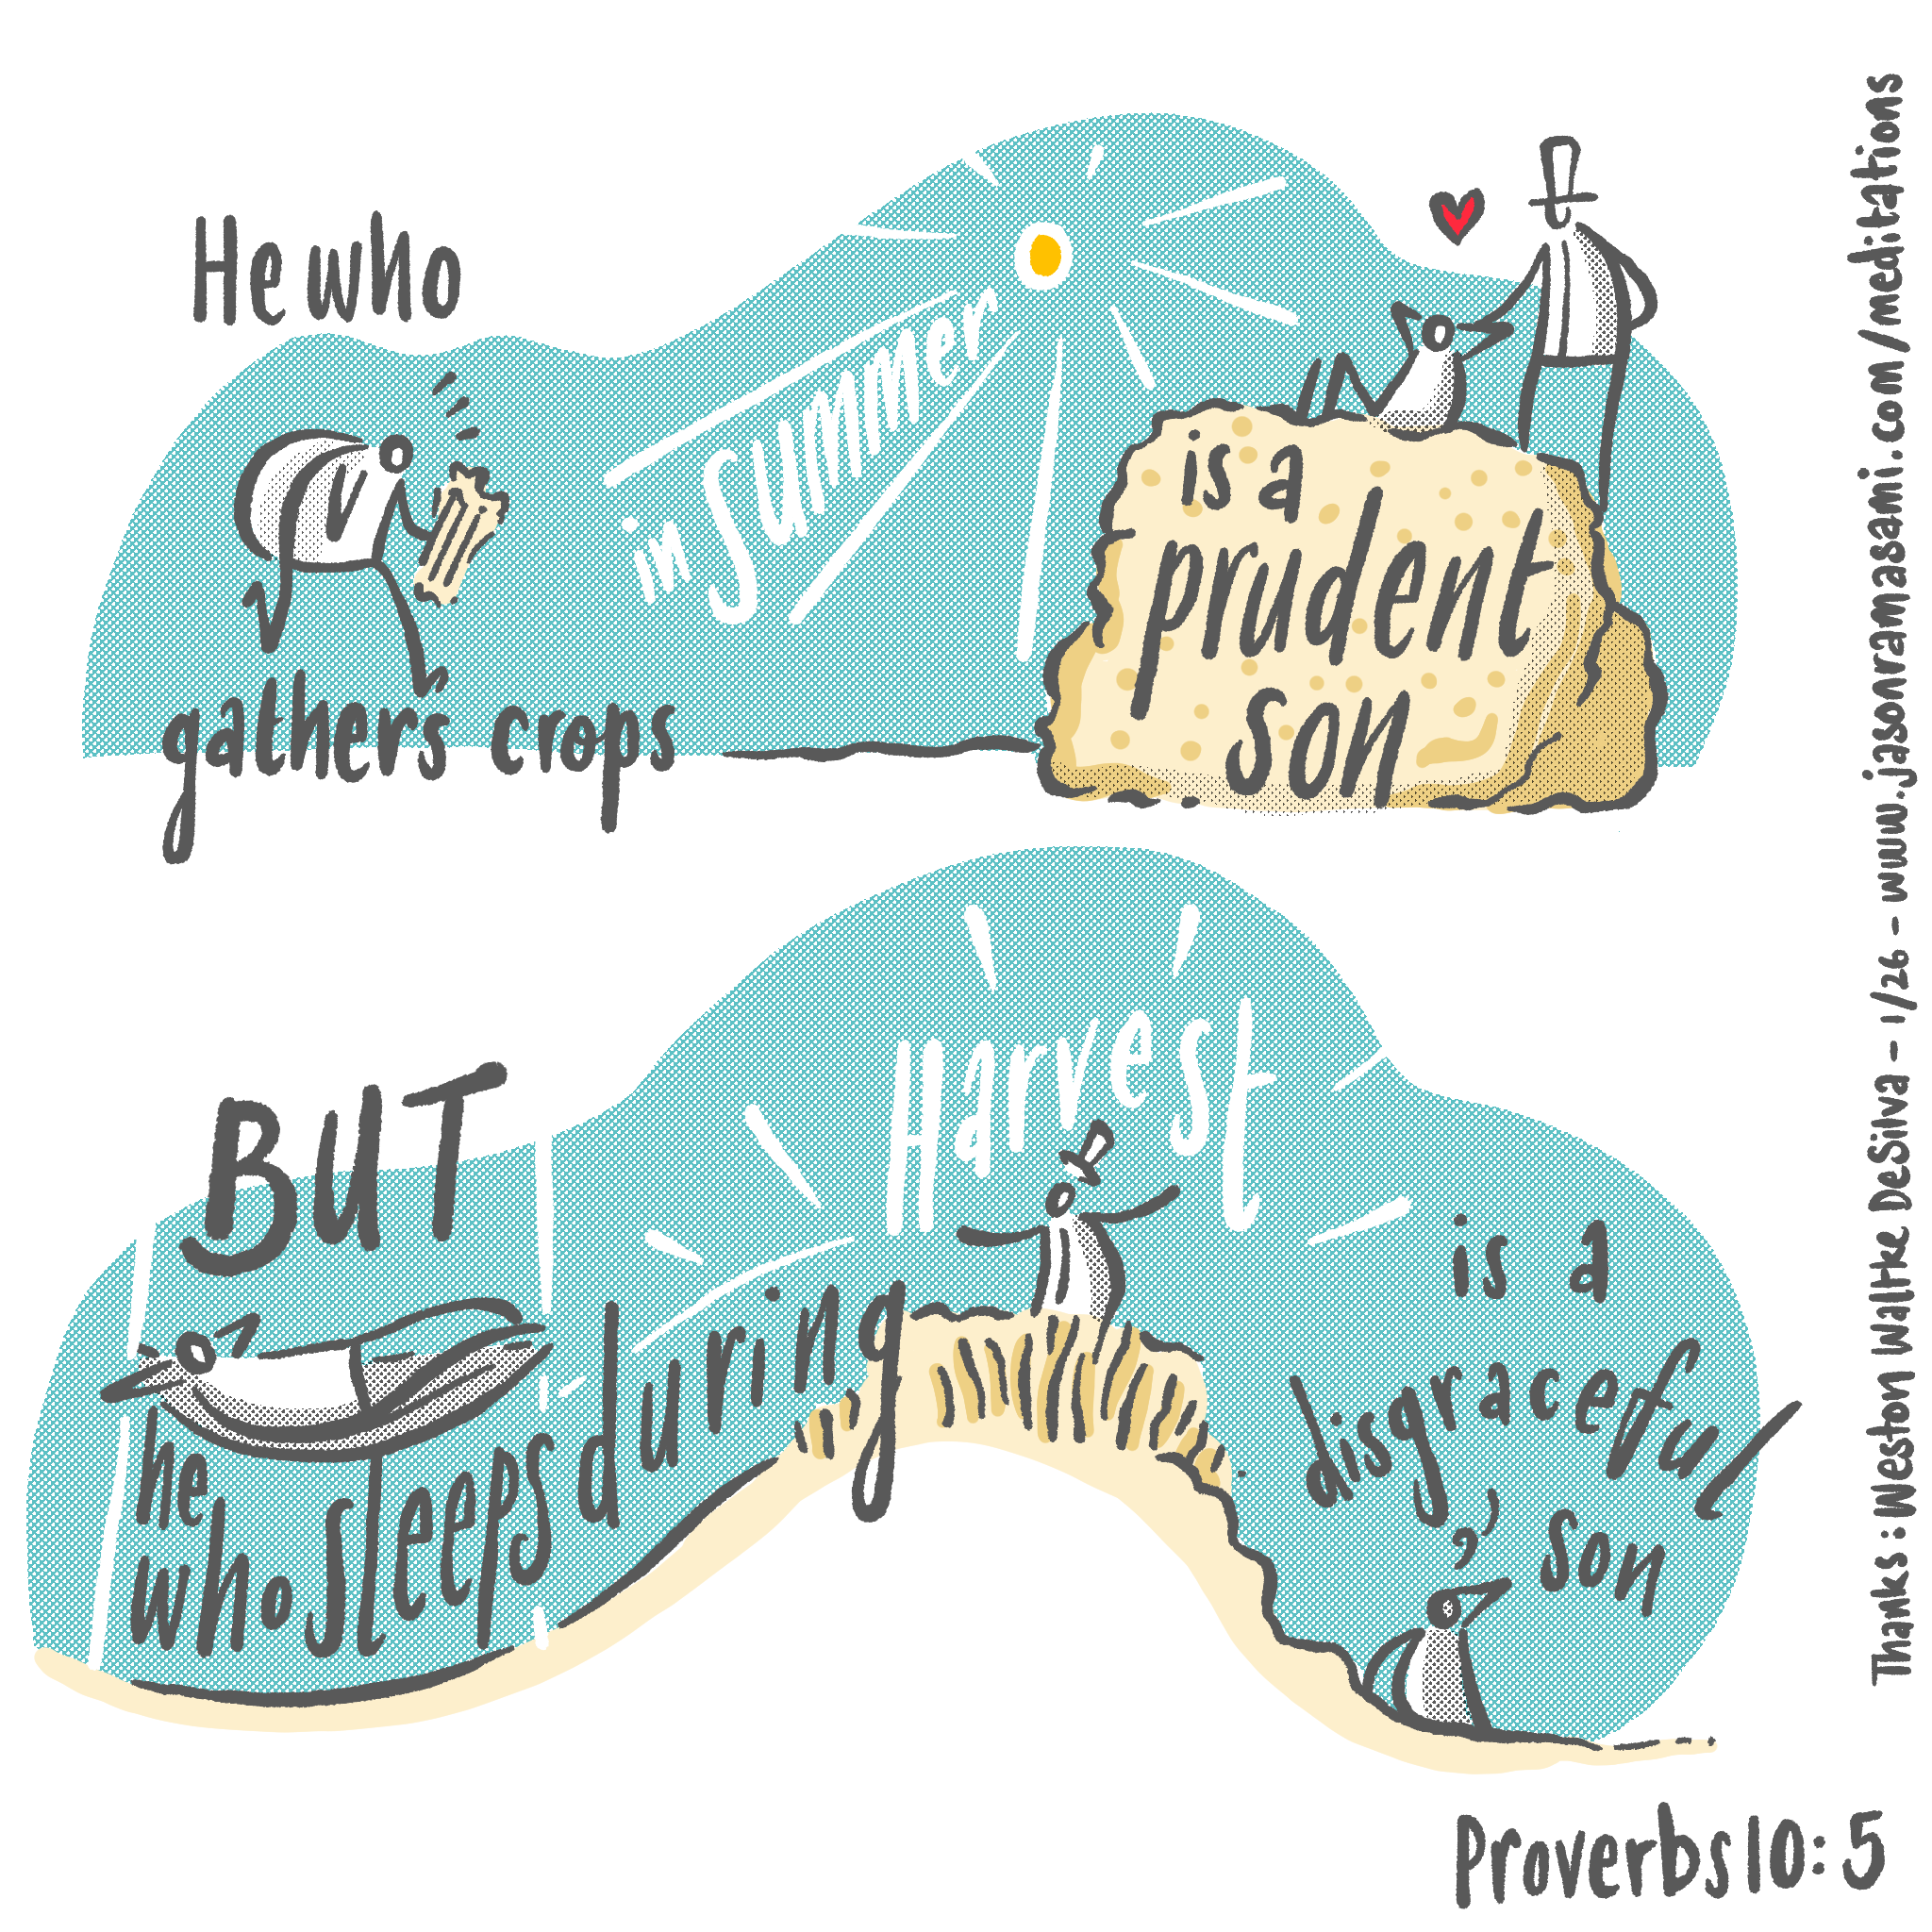 He who
gathers crops
in summer
is a
prudent
son
BUT
he
who sleeps during
Harvest
is a
disgraceful
son
Proverbs 10:5
Thanks: Weston Waltke DeSilva - 1/26 - www.jasonramasami.com/meditations